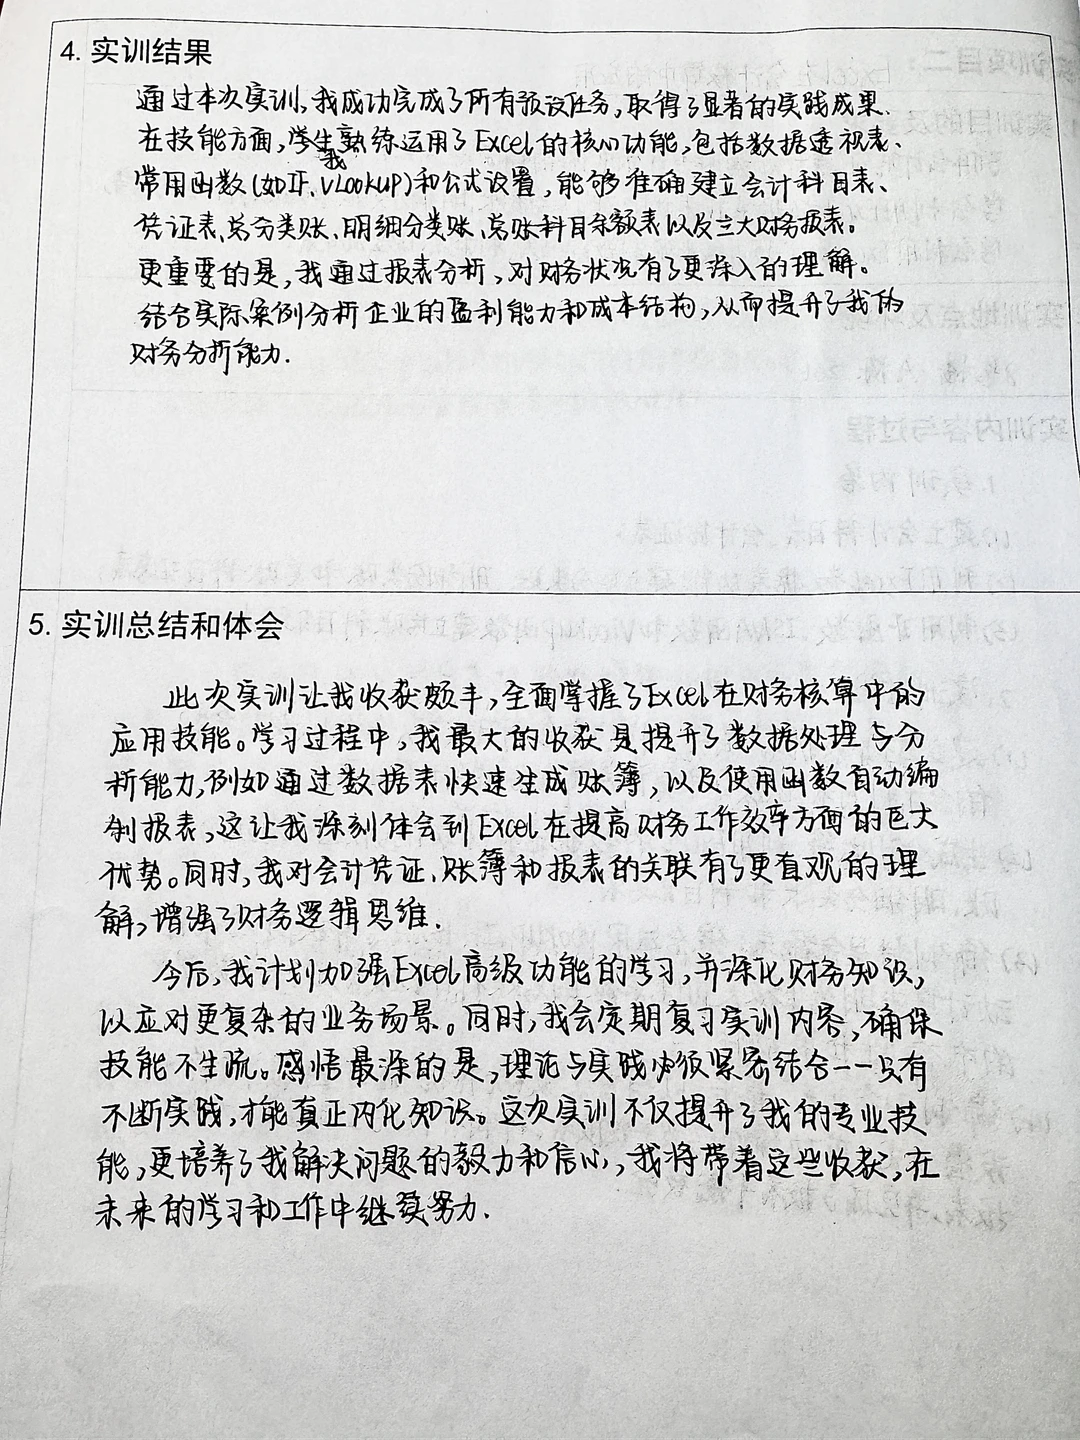 4. 实训结果
通过本次实训,我成功完成了所有预设任务,取得了显著的实践成果.
在技能方面,学生熟练运用了Excel的核心功能,包括数据透视表、
我
常用函数(如IF、VLOOKUP)和公式设置,能够准确建立会计科目表、
凭证表、总分类账、明细分类账、总账科目余额表以及三大财务报表。
更重要的是,我通过报表分析,对财务状况有了更深入的理解。
结合实际案例分析企业的盈利能力和成本结构,从而提升了我的
财务分析能力.
5. 实训总结和体会
此次实训让我收获颇丰,全面掌握了Excel在财务核算中的
应用技能。学习过程中,我最大的收获是提升了数据处理与分
析能力,例如通过数据表快速生成账簿,以及使用函数自动编
制报表,这让我深刻体会到Excel在提高财务工作效率方面的巨大
优势。同时,我对会计凭证、账簿和报表的关联有了更直观的理
解,增强了财务逻辑思维.
今后,我计划加强Excel高级功能的学习,并深化财务知识,
以应对更复杂的业务场景。同时,我会定期复习实训内容,确保
技能不生疏。感悟最深的是,理论与实践必须紧密结合——只有
不断实践,才能真正内化知识。这次实训不仅提升了我的专业技
能,更培养了我解决问题的毅力和信心,我将带着这些收获,在
未来的学习和工作中继续努力.